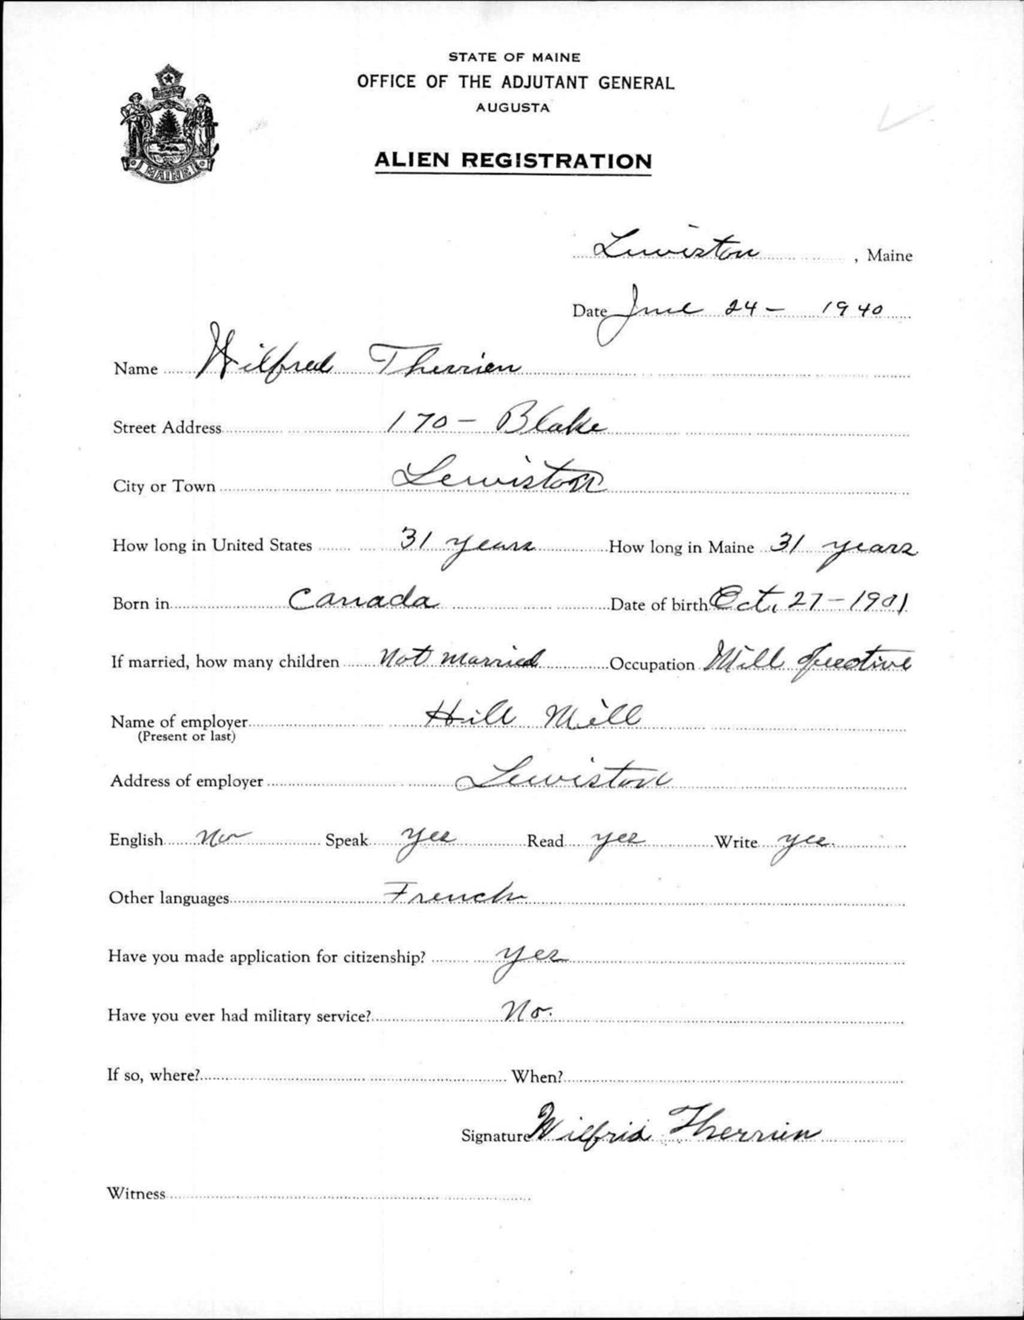 STATE OF MAINE
OFFICE OF THE ADJUTANT GENERAL
AUGUSTA
ALIEN REGISTRATION
MAINE
Lewiston, Maine
Date June 24 - 1940
Name Wilfred Therrien
Street Address 170 - Blake
City or Town Lewiston
How long in United States 31 years How long in Maine 31 years
Born in Canada Date of birth Oct, 27 - 1901
If married, how many children Not married Occupation Mill
Name of employer Hill Mill
(Present or last)
Address of employer Lewiston
English No Speak yes Read yes Write yes.
Other languages French
Have you made application for citizenship? yes
Have you ever had military service? No.
If so, where? When?
Signature Wilfrid Therrien
Witness